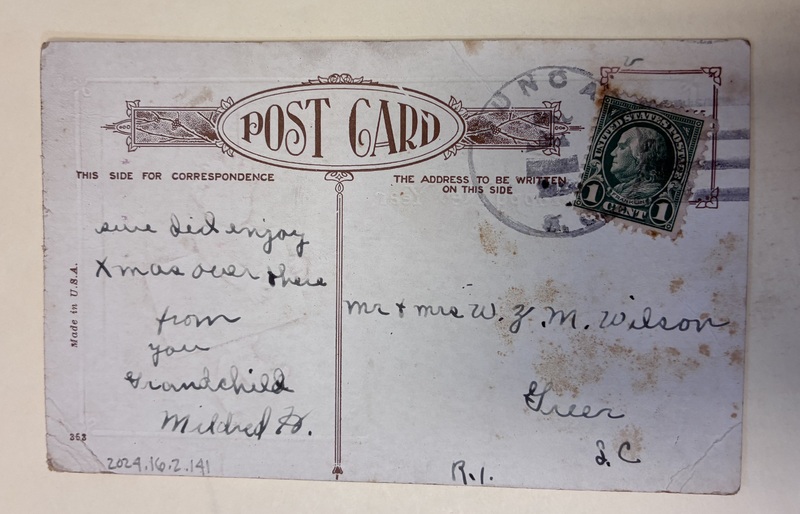 POST CARD
THIS SIDE FOR CORRESPONDENCE
THE ADDRESS TO BE WRITTEN
ON THIS SIDE
UNCA
UNITED STATES POSTAGE
FRANKLIN
1 CENT 1
sure did enjoy
Xmas over there
from
you
Grandchild
Mildred H.
Mr + Mrs W. Z. M. Wilson
Greer
S.C
R.1.
Made in U.S.A.
363
2024.16.2.141